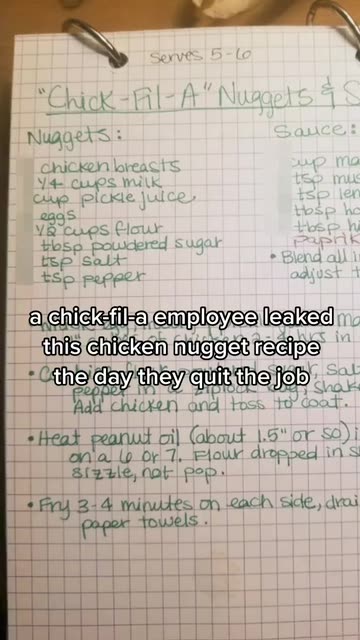 Serves 5-6
"Chick-Fil-A" Nuggets &
Nuggets:
chicken breasts
1/4 cups milk
cup pickle juice
eggs
1/2 cups flour
tbsp powdered sugar
tsp salt
tsp pepper
Sauce:
cup
tsp
tsp
tbsp
tbsp
Paprik
• Blend all
adjust
a chick-fil-a employee leaked
this chicken nugget recipe
the day they quit the job
pepper in a ziplock
Add chicken and toss to coat.
• Heat peanut oil (about 1.5" or so)
on a 6 or 7. Flour dropped in
sizzle, not pop.
• Fry 3-4 minutes on each side,
paper towels.